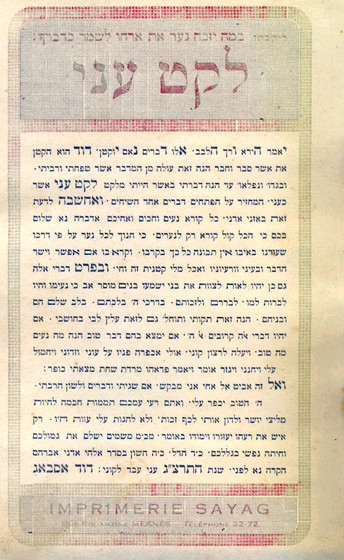 במה יזכה נער את ארחו לשמר כדבריך:
לקט עני
יאמר הירא ורך הלבב. אלו דברים נאם יוקטן. דוד הוא הקטן
את אשר סבר וחבר הנה זאת עולה מן המדבר אשר טפחתי ורביתי.
ובגדר ונפלאו עד הנה דברתי באשר הייתי מלקט לקט עני אשר
כעני. המחזיר על הפתחים דברים אחד השיחים. ואחשבה לדעת
זאת באזני אדני. כל קורא נעים וחכים ואחיכם אדברה נא שלום
בכם כי הבל קול קורא רק לנערים. כי חנוך לכל נער על פי דרכו
שעודנו באיבו אין תבונה כל כך בקרבו. וקראו בו אם אפשר וישר
הדבר ובעיני וורעיוניו ואכל מלי קטנית זה וחי. ובפרט דברי אלה
גם כן יהיו לאות לצוות את בני ישמעו בנים מוסר אב כי נעימו והיו
לברות למו. לבררם ולזכותם. בדרכי ה' בלכתם. כלב שלם הם
ובניהם. הנה זאת תקותי ותוחל' גם לזאת עלין לבי בחושבי. אם
יהיו דברי אלה קרובים אל ה'. אם ימצא בהם דבר טוב הנה מה נעים
מה טוב. ויעלה לרצון קוני. אולי אכפרה פניו על עוני וזדוני ויחמול
עלי ויחנני ויגזר אומר ויאמר פדאהו מרדת שחת מצאתי כופר:
ואל זה אביט אל אחי אני מבקש. אם שגיתי ודברים ולשון הרבתי.
ה' הטוב יכפר עלי. ואתם רעי עמכם תממות חכמה להיות
מליצי יושר ולדון אותי לכף זכות. ולא להגות עלי עזות דוד. רק
איש את רעהו יעזורו ויימודו כאומר. מבית משמים ישלם את גמולכם
וחיתה נפשי בגללכם. כיד הדל. ביה חשון בסדר אלהי אדני אברהם
הקרה נא לפני. שנת התרצ"ג עני עבד לקוני: דוד אסבאג
IMPRIMERIE SAYAG
MEKNÈS - TÉLÉPHONE 32-72